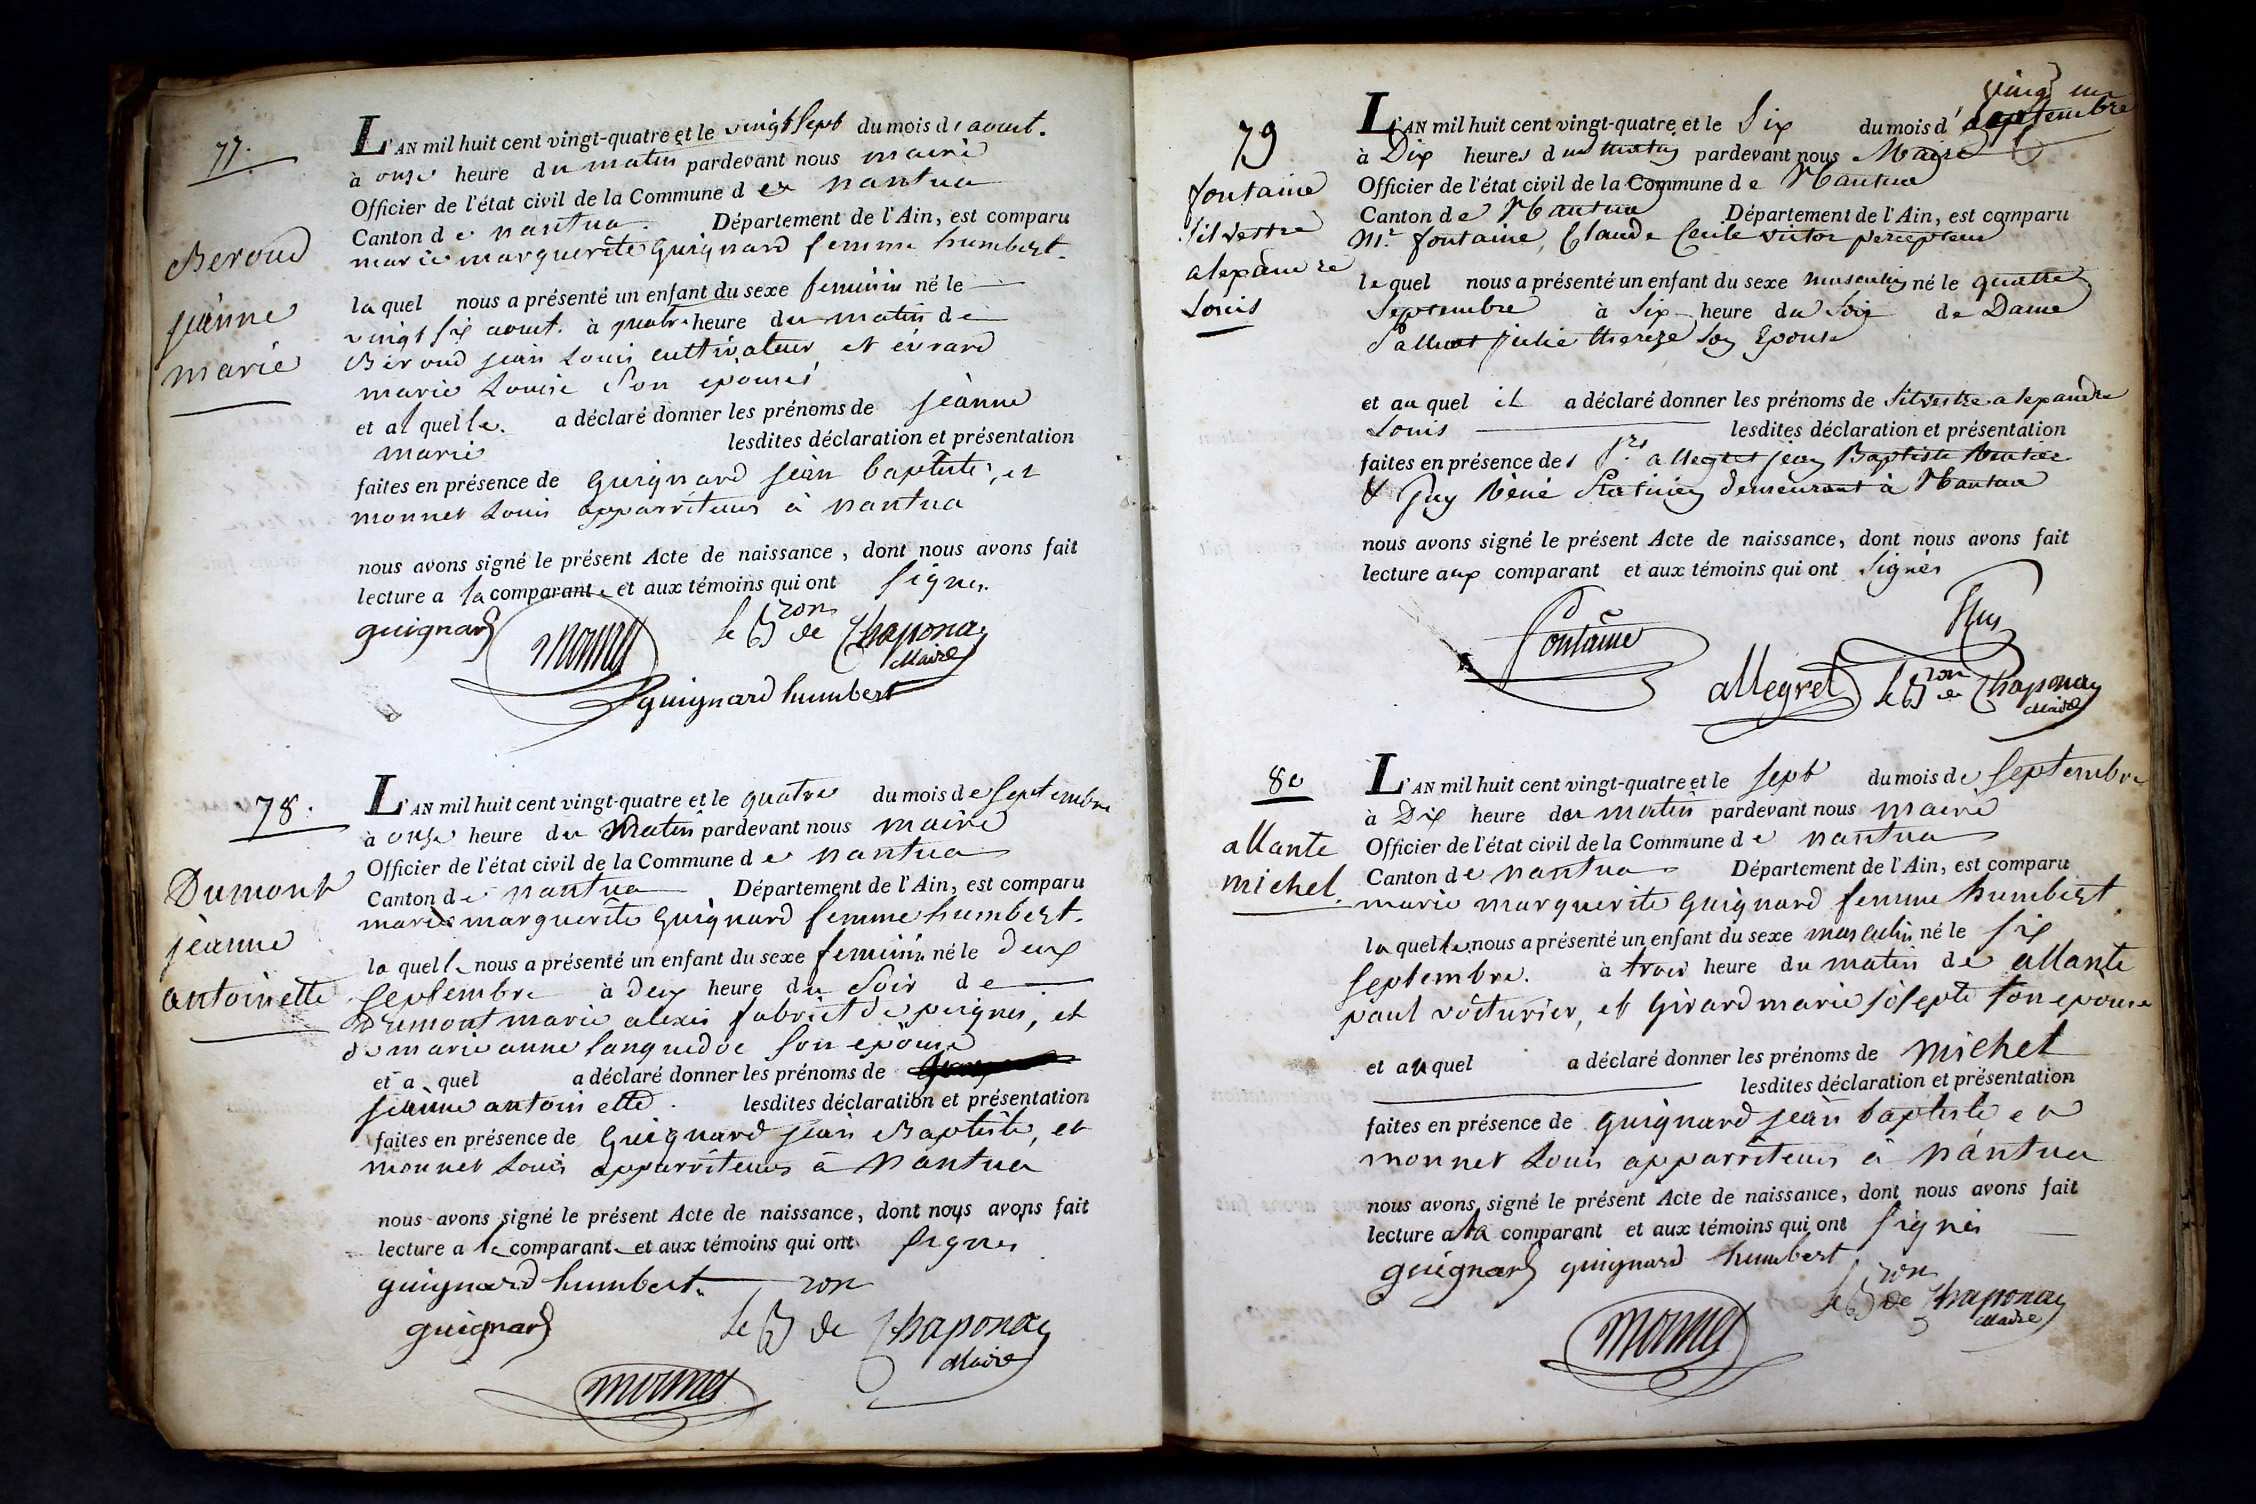 77.
Beroud
jeanne
marie
L'AN mil huit cent vingt-quatre et le vingt sept du mois d'aout.
à onze heure du matin pardevant nous maire
Officier de l'état civil de la Commune de nantua
Canton de nantua. Département de l'Ain, est comparu
marie marguerite Guignard femme humbert.
laquel nous a présenté un enfant du sexe feminin né le
vingt six aout. à quatre heure du matin de
Beroud jean Louis cultivateur et évrard
marie Louise son epouse
et a quelle. a déclaré donner les prénoms de jeanne
marie lesdites déclaration et présentation
faites en présence de Guignard jean baptiste, et
monnet Louis apparriteurs à nantua
nous avons signé le présent Acte de naissance, dont nous avons fait
lecture a la comparante et aux témoins qui ont signés.
guignard monnet le Bron de Chaponay
Maire
guignard humbert
78.
Dumont
jeanne
antoinette
L'AN mil huit cent vingt-quatre et le quatre du mois de septembre
à onze heure du Matin pardevant nous maire
Officier de l'état civil de la Commune de nantua
Canton de nantua Département de l'Ain, est comparu
marie marguerite Guignard femme humbert.
la quelle nous a présenté un enfant du sexe feminin né le deux
septembre à deux heure du soir de
Dumont marie alexis fabrict de peignes, et
de marie anne languedoc son epouse
et a quel a déclaré donner les prénoms de
jeanne antoinette. lesdites déclaration et présentation
faites en présence de Guignard jean Baptiste, et
monnet Louis apparriteurs à Nantua
nous avons signé le présent Acte de naissance, dont nous avons fait
lecture a le comparante et aux témoins qui ont signés
guignard humbert.
guignard le Bron de Chaponay
Maire
monnet
79
fontaine
silvestre
alexandre
Louis
L'AN mil huit cent vingt-quatre et le six du mois d' septembre
à Dix heures du matin pardevant nous Maire
Officier de l'état civil de la Commune de Nantua
Canton de Nantua Département de l'Ain, est comparu
Mr. fontaine, Claude Cecile victor percepteur
lequel nous a présenté un enfant du sexe masculin né le quatre
septembre à six heure du soir de Dame
julie thereze son Epouse
et au quel il a déclaré donner les prénoms de silvestre alexandre
Louis lesdites déclaration et présentation
faites en présence des Srs allegret jean Baptiste
& Guy Réné demeurant à Nantua
nous avons signé le présent Acte de naissance, dont nous avons fait
lecture aux comparant et aux témoins qui ont signés
fontaine Guy
allegret le Bron de Chaponay
Maire
80
allante
michel.
L'AN mil huit cent vingt-quatre et le sept du mois de septembre
à Dix heure du matin pardevant nous maire
Officier de l'état civil de la Commune de nantua
Canton de nantua Département de l'Ain, est comparu
marie marguerite Guignard femme humbert.
la quelle nous a présenté un enfant du sexe masculin né le six
septembre. à trois heure du matin de allante
paul voiturier, et Girard marie josepte son epouse
et au quel a déclaré donner les prénoms de michel
lesdites déclaration et présentation
faites en présence de guignard jean baptiste et
monnet Louis apparriteurs à nantua
nous avons signé le présent Acte de naissance, dont nous avons fait
lecture a la comparant et aux témoins qui ont signés
guignard guignard humbert
le Bron de Chaponay
Maire
monnet